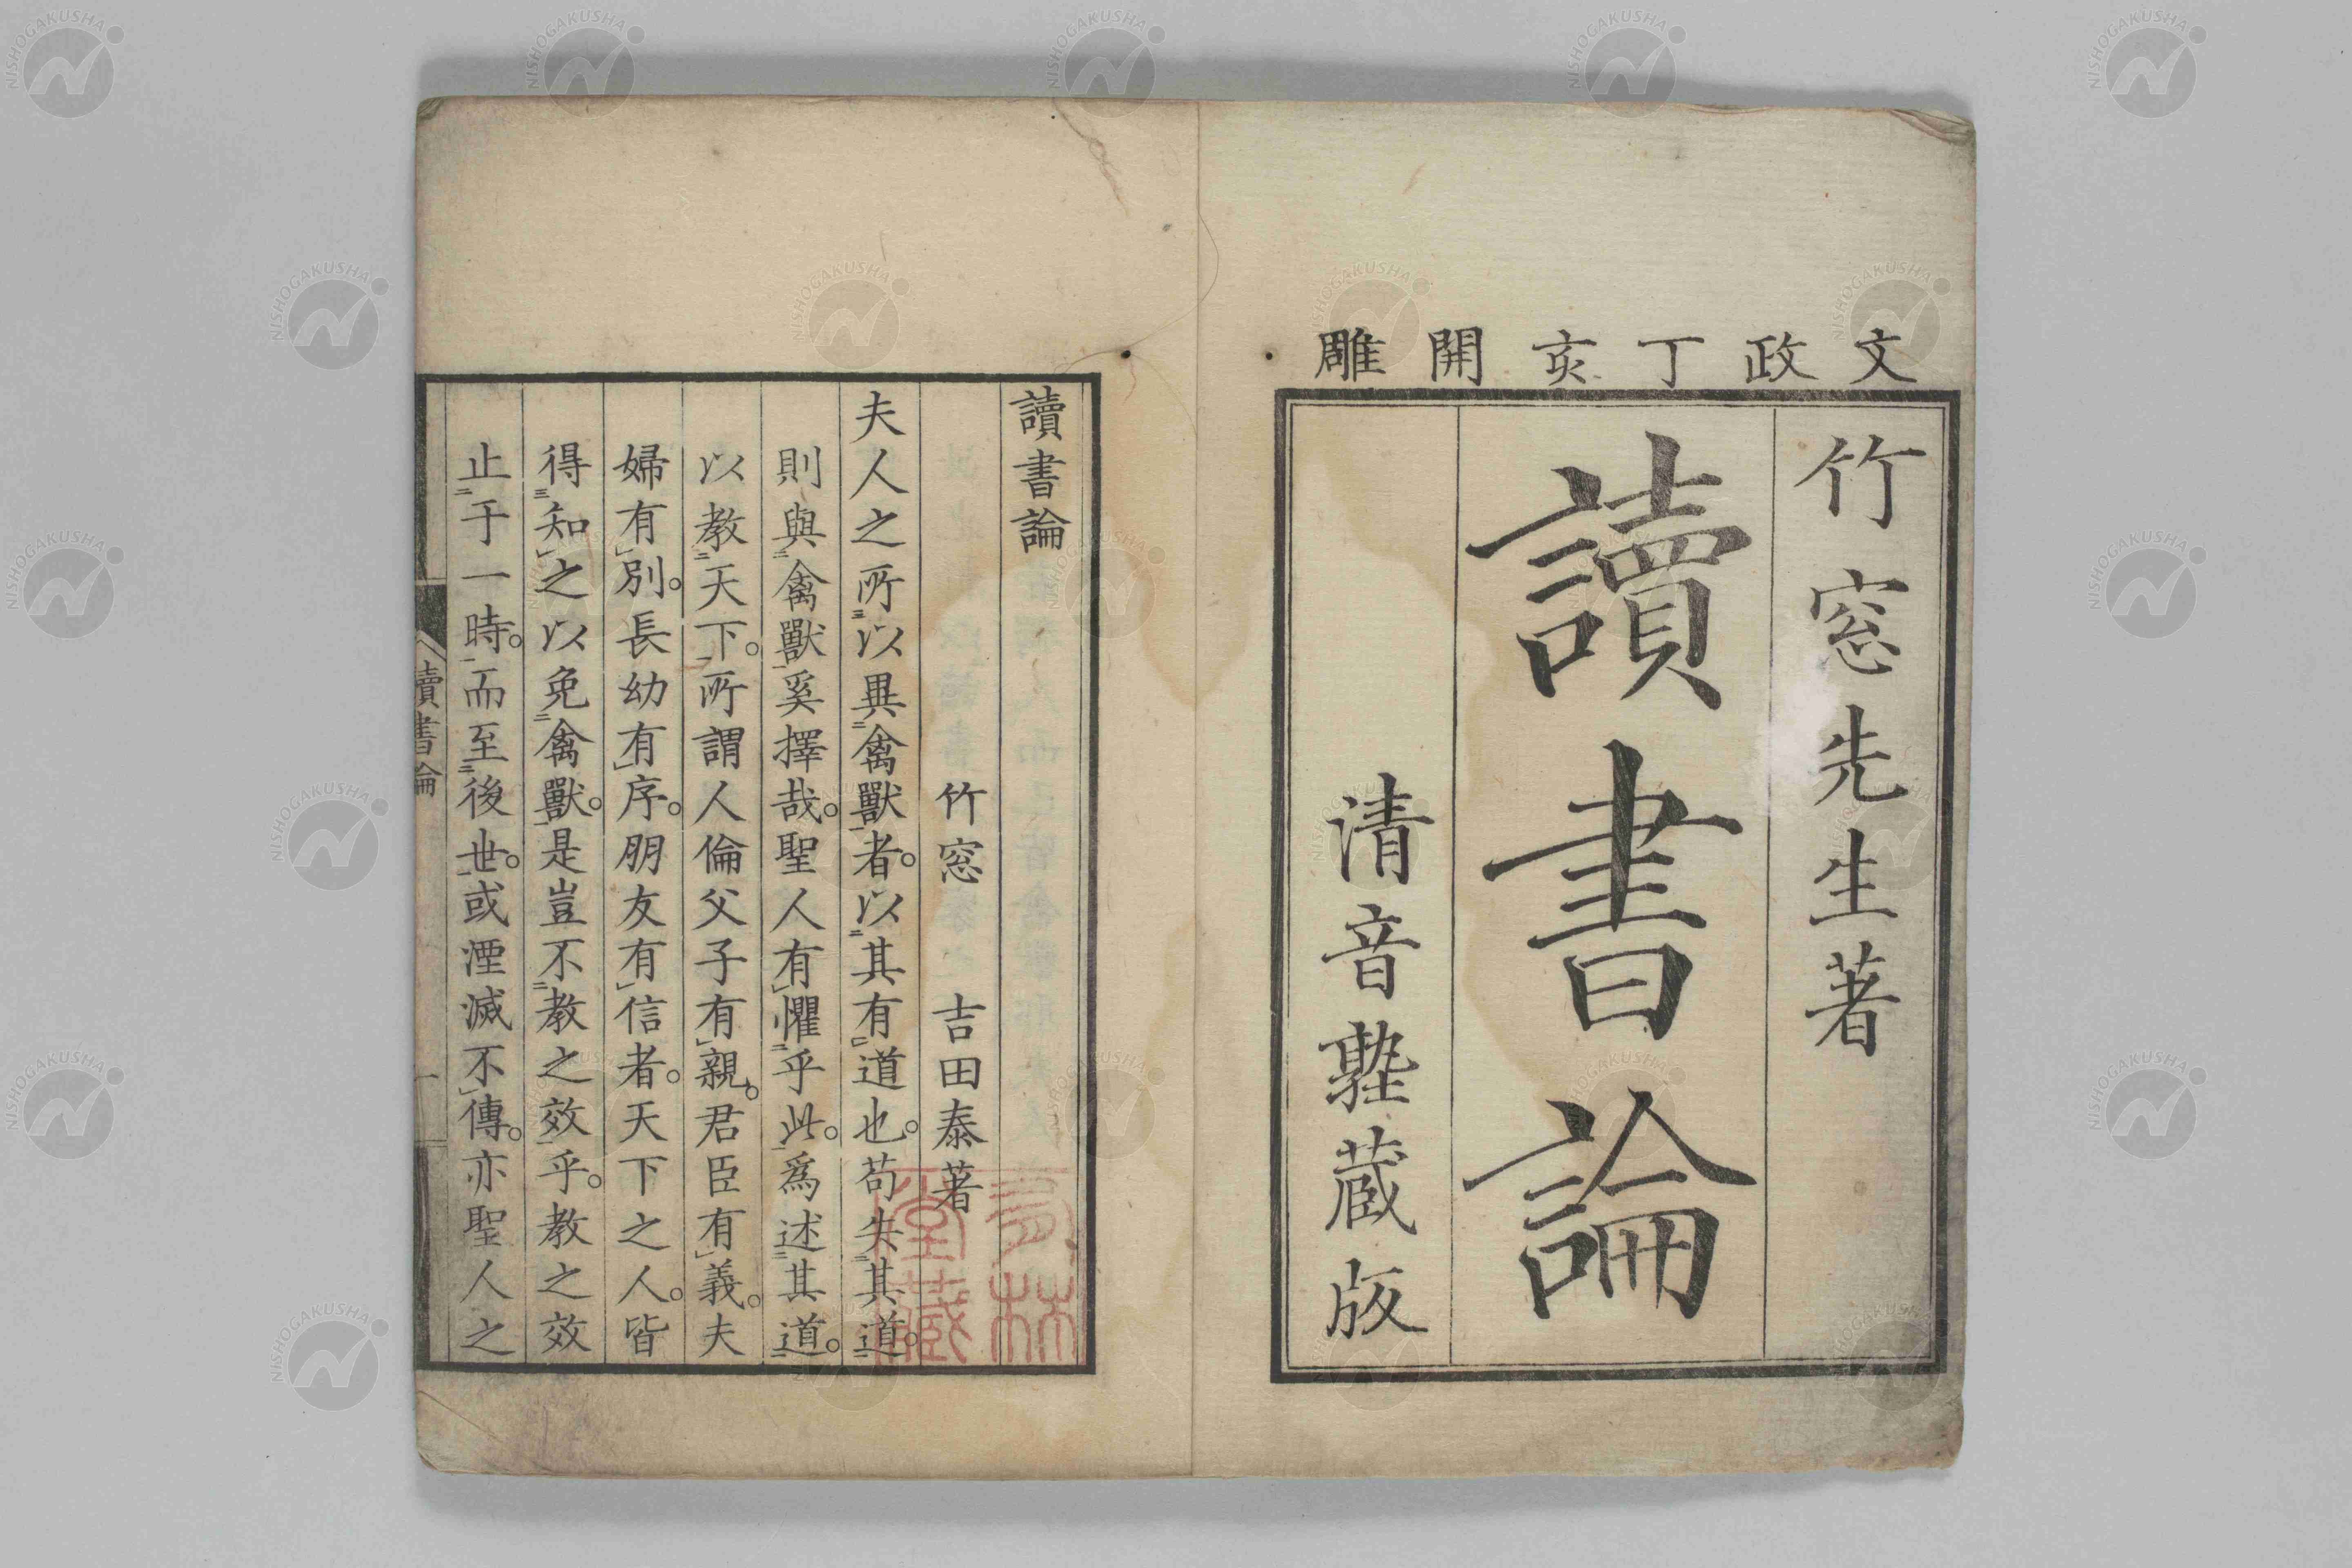 文政丁亥開雕
竹窓先生著
讀書論
清音塾蔵版
讀書論
竹窓 吉田泰著
夫人之所以異禽獸者。以其有道也。苟失其道。
則與禽獸奚擇哉。聖人有懼乎此。爲述其道。
以教天下。所謂人倫父子有親。君臣有義。夫
婦有別。長幼有序。朋友有信者。天下之人。皆
得知之以免禽獸。是豈不教之效乎。教之效
止于一時。而至後世。或湮滅不傳。亦聖人之
讀書論
一
NISHOGAKUSHA